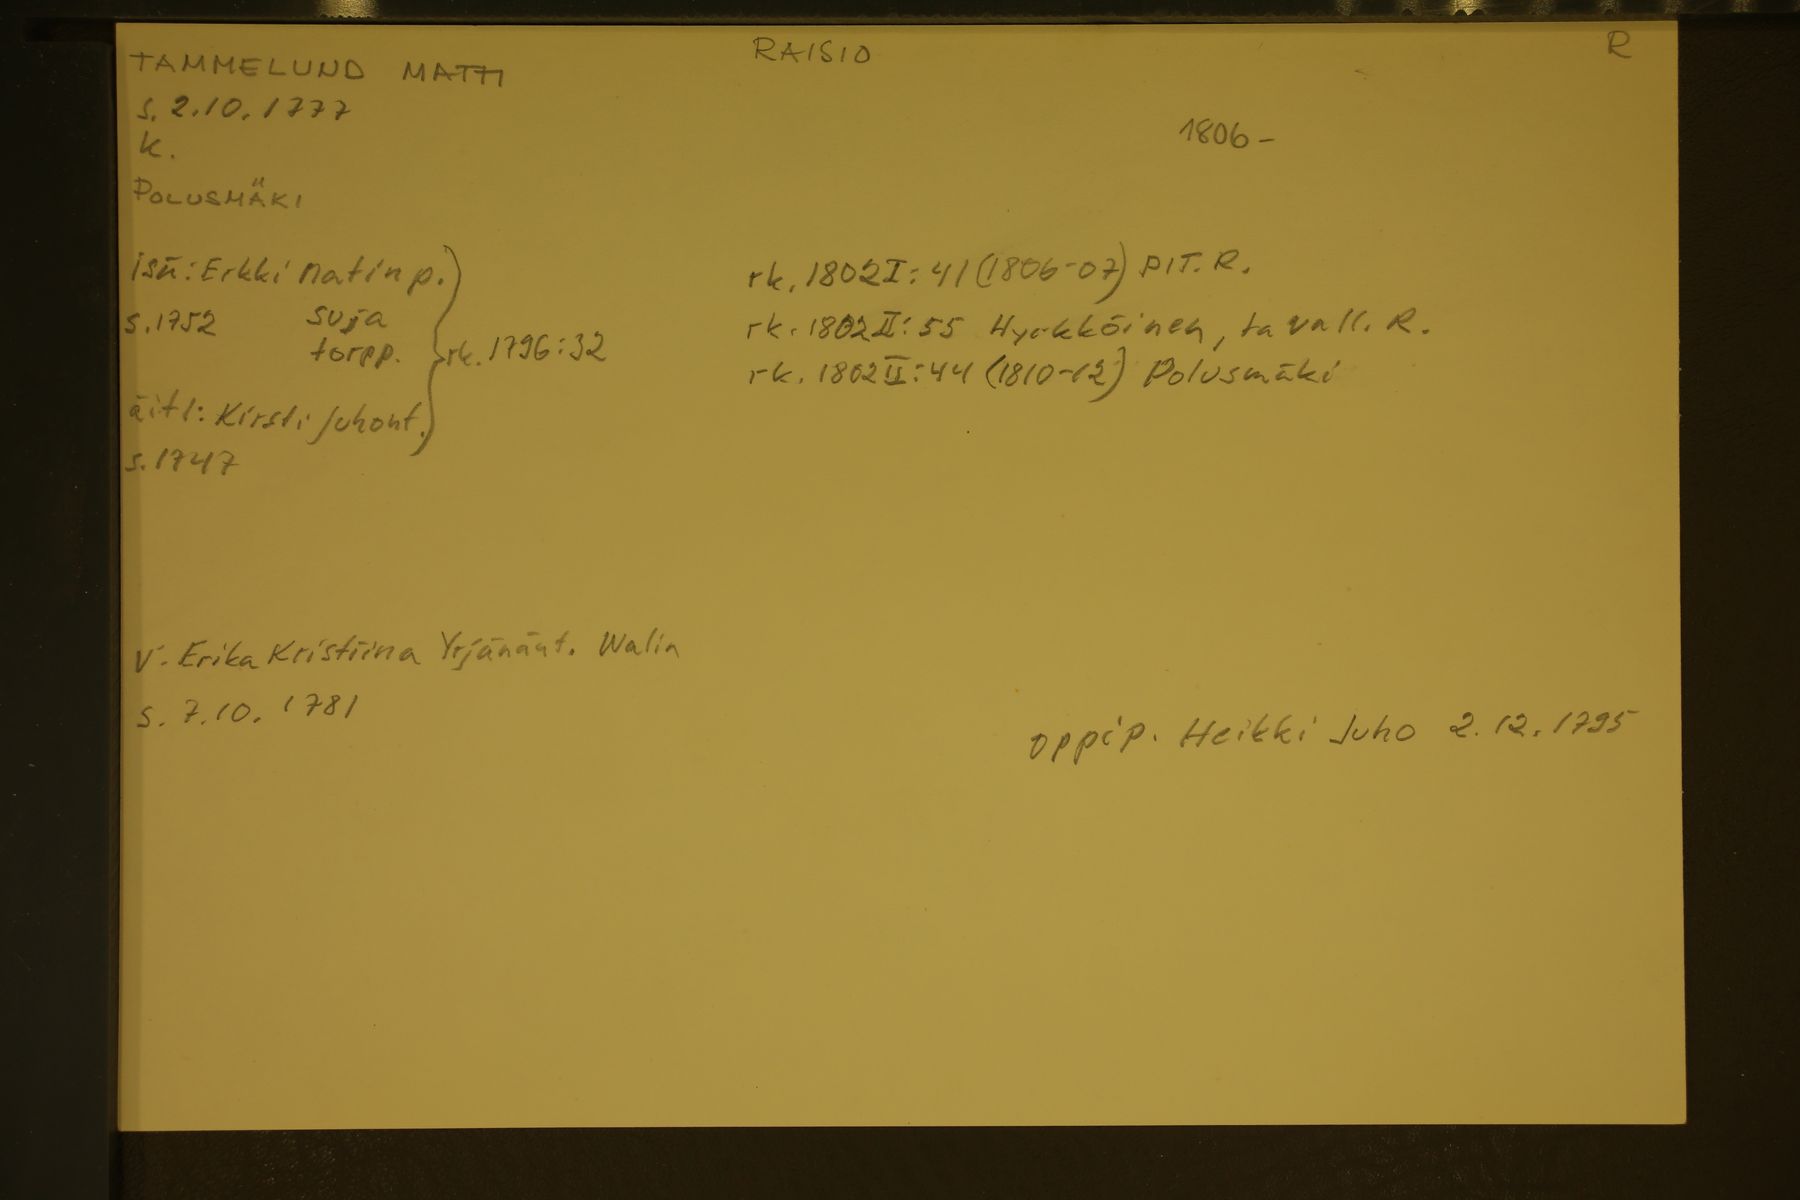 TAMMELUND MATTI
RAISIO
R
s. 2.10.1777
k.
1806-
POLUSMÄKI
isä: Erkki Matinp.
s. 1752 suja
torpp.
rk. 1796:32
äiti: Kirsti Juhont.
s. 1747
rk. 1802 I: 41 (1806-07) PIT. R.
rk. 1802 II: 55 Hyrkköinen, tavall. R.
rk. 1802 II: 44 (1810-12) Polusmäki
v. Erika Kristiina Yrjänänt. Walin
s. 7.10.1781
oppip. Heikki Juho 2.12.1795